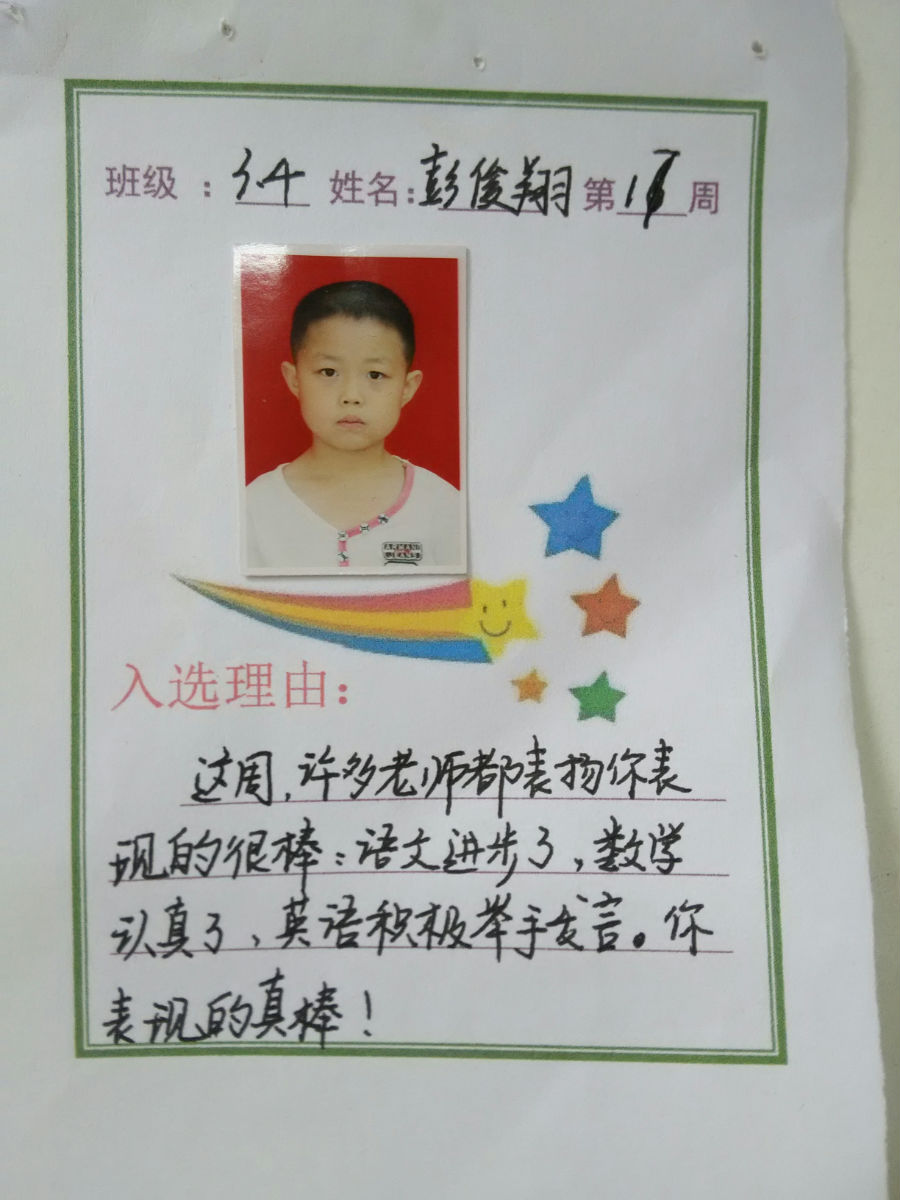 班级：3.4 姓名：彭俊翔 第1周
ARMANI
JEANS
入选理由：
这周,许多老师都表扬你表
现的很棒:语文进步了,数学
认真了,英语积极举手发言。你
表现的真棒!